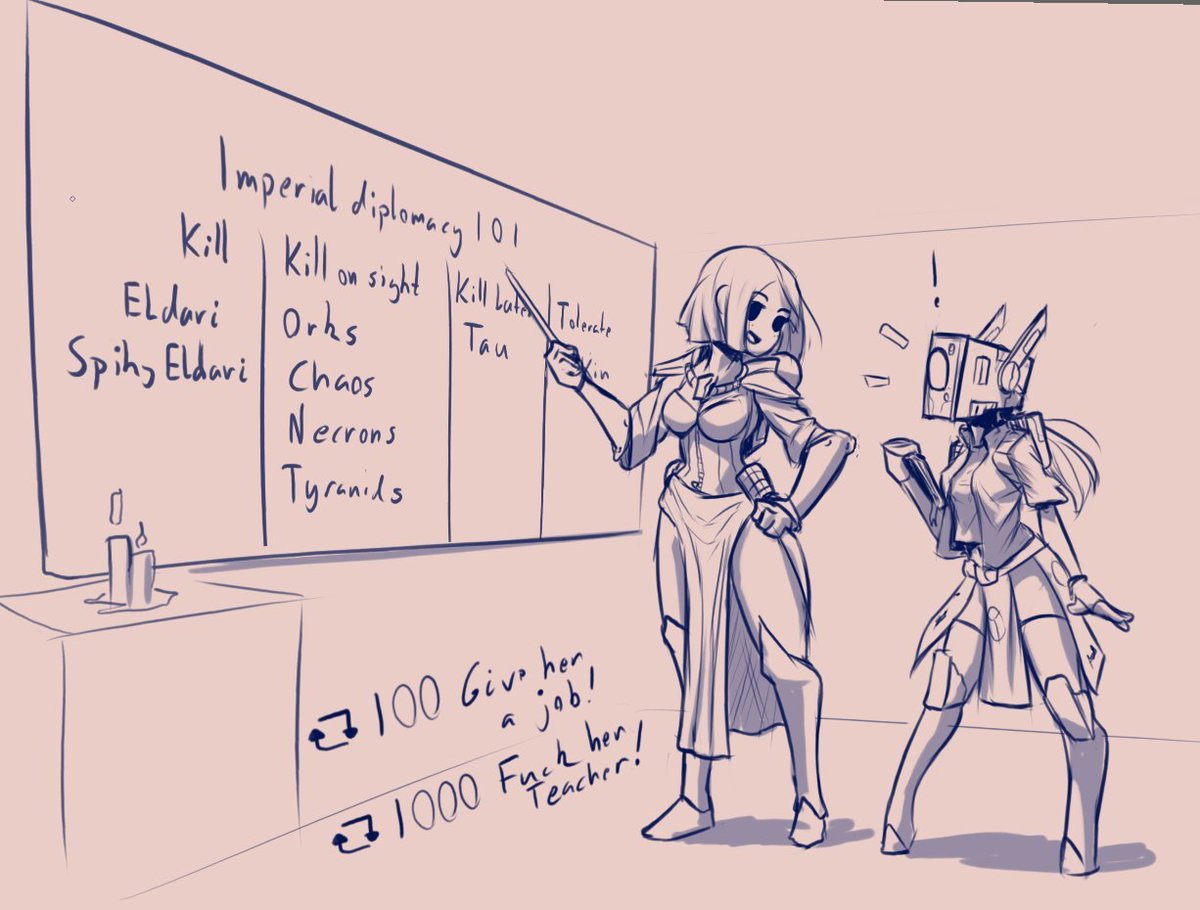 Imperial diplomacy 101
Kill
Eldari
Spiky Eldari
Kill on sight
Orks
Chaos
Necrons
Tyranids
Kill later
Tau
Tolerate
!
100 Give her
a job!
1000 Fuck her
Teacher!